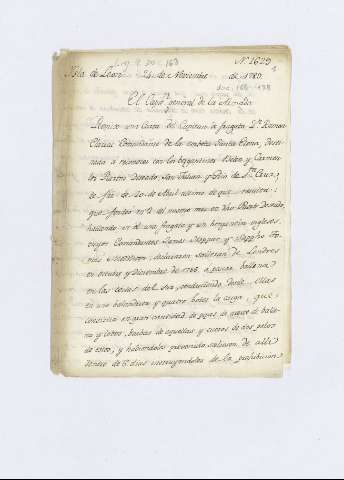 Leg. 2 doc. 168
Nº 1629
Isla de Leon 24 de Noviembre de 1789.
doc. 168-198
El Cap.n general de la Armada
Remite una Carta del Capitan de fragata D.n Ramon
Clairac Comandante de la corbeta Santa Elena, desti
nada à reconocer con los bergantines Belen y Carmen
los Puertos Deseado, San Julian, y Rio de S.ta Cruz,
de fha 20 de Abril ultimo de que resulta:
que fondeó en 2 del mismo mes en dho Puerto Deseado,
hallando en él una fragata y un bergantin ingleses,
cuyos Comandantes James
Thomas Middleton, declararon salieron de Londres
en octubre y Diciembre de 1788 à pescar ballena
en las costas del Sur, conduciendo desde
en una balandra y quatro botes la carga, que
consistia en gran cantidad de pipas de grasa de balle
na y lobos, barbas de aquellas y cueros de dos pelos
de estos, y habiendoles prevenido saliesen de alli
dentro de 6 dias instruyendoles de la prohibicion